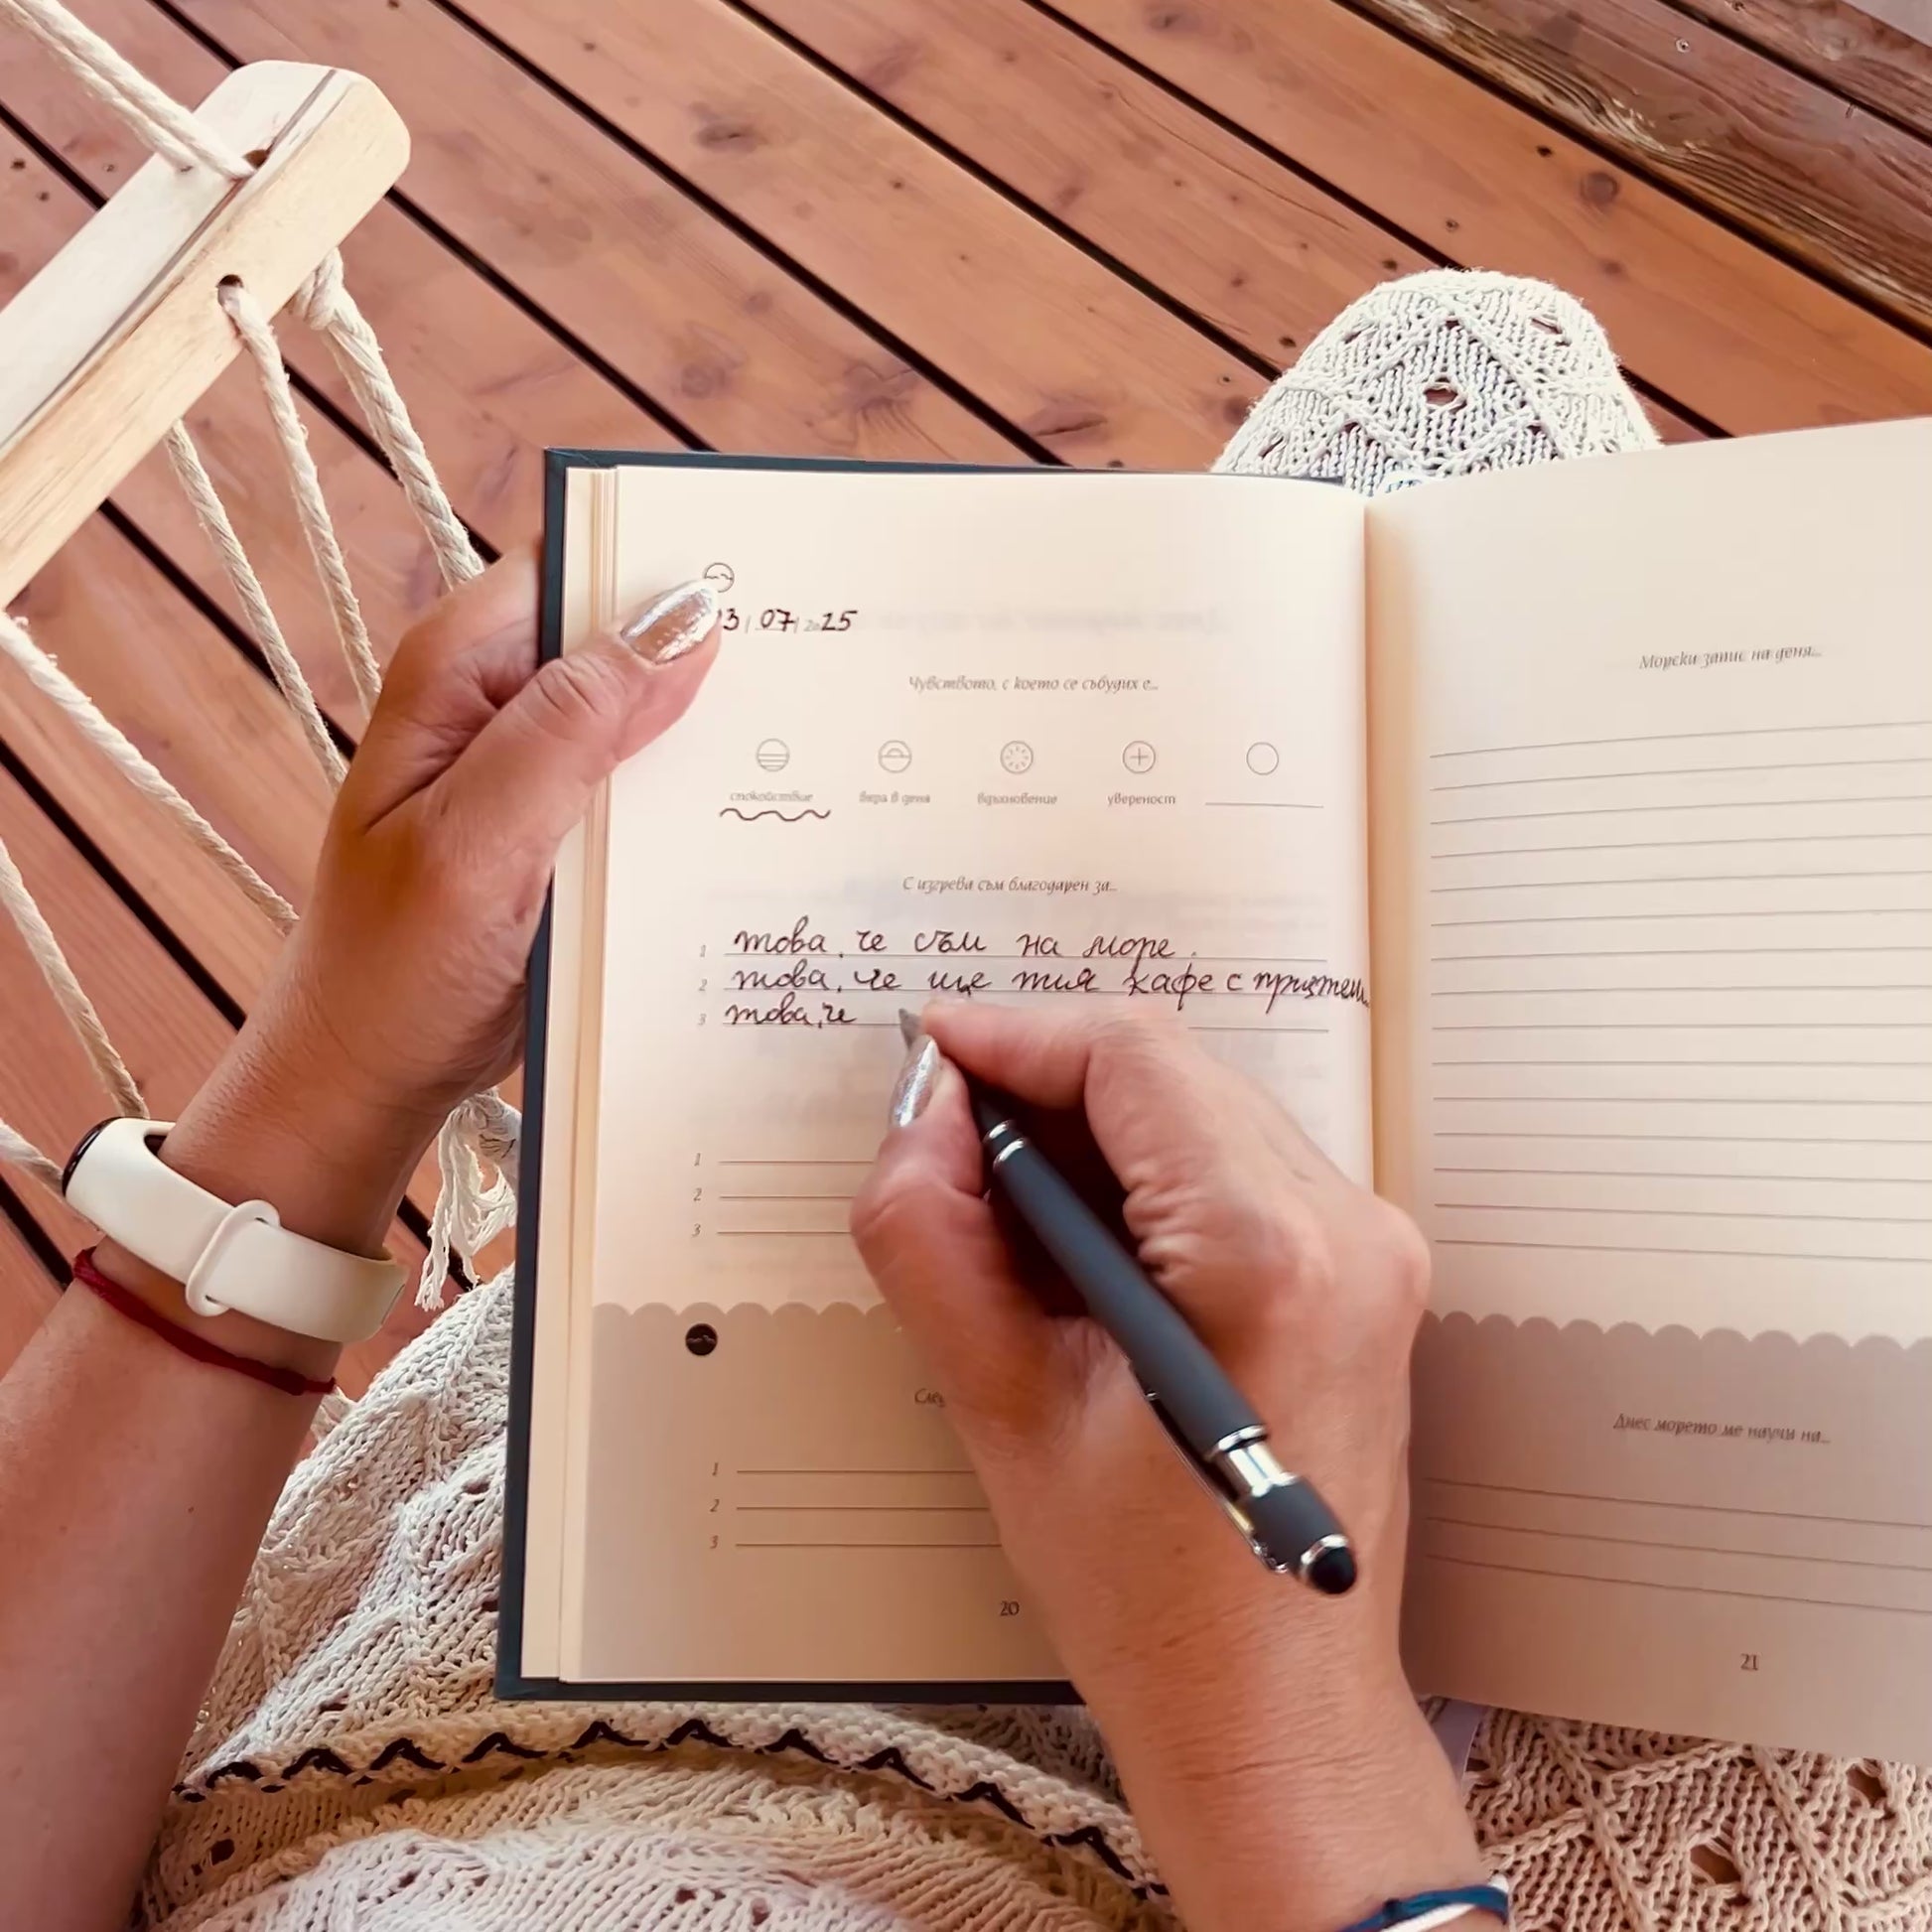 3 | 07 | 2025
Чувството, с което се събудих е...
спокойствие вяра в деня вдъхновение увереност
С изгрева съм благодарен за...
1 това, че съм на море.
2 това, че ще пия кафе с приятели
3 това, че
1
2
3
1
2
3
20
Морски запис на деня...
Днес морето ме научи на...
21